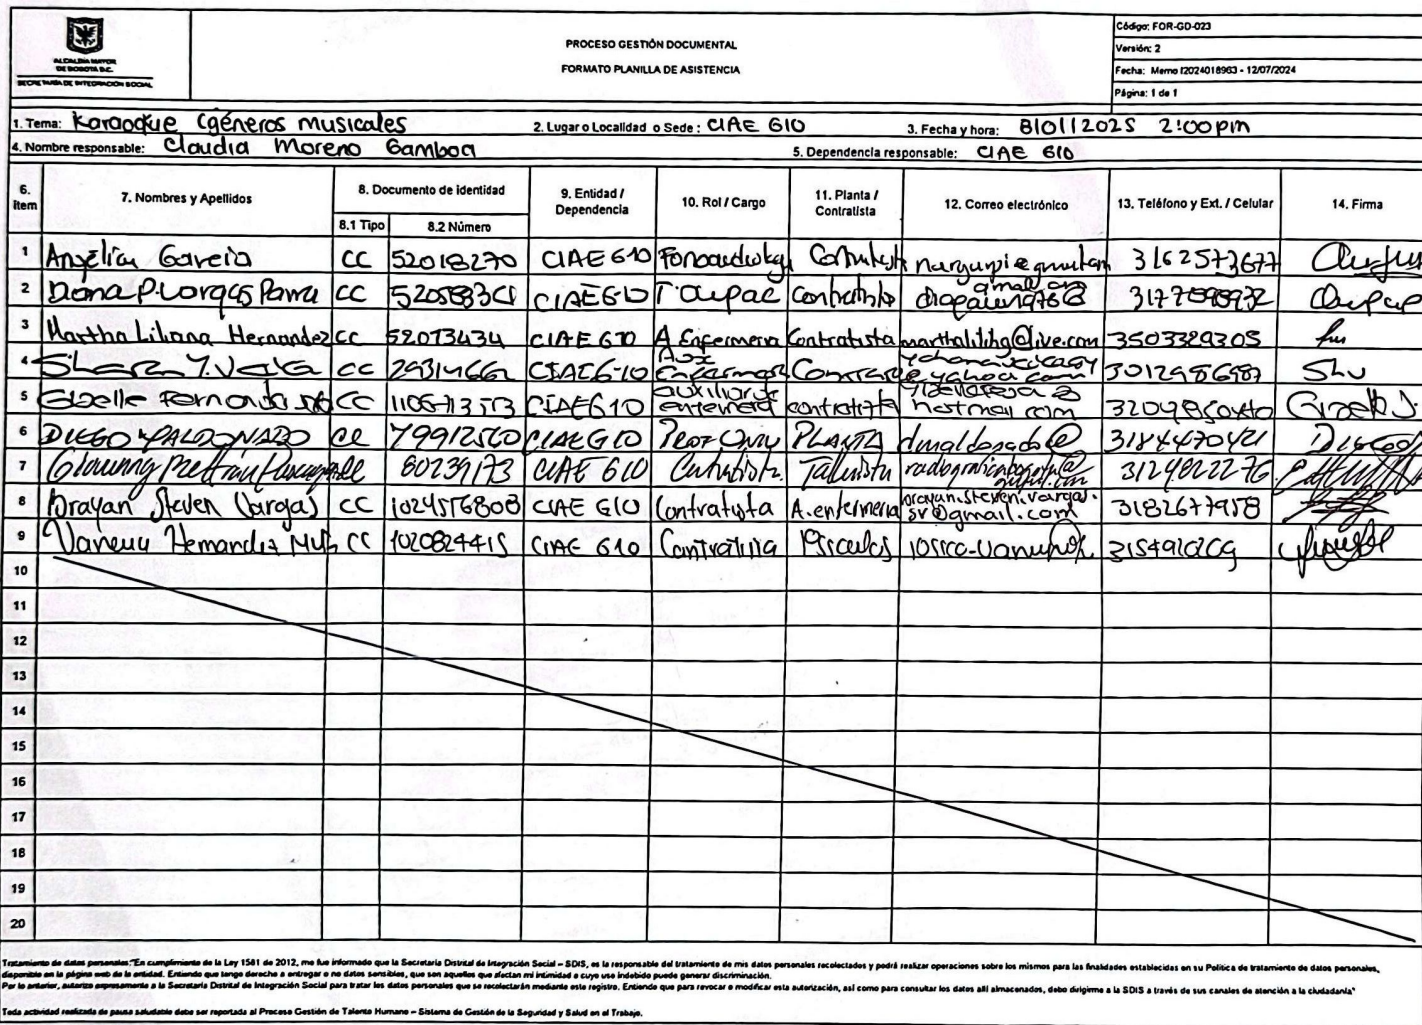 ALCALDÍA MAYOR
DE BOGOTÁ D.C.
SECRETARÍA DE INTEGRACIÓN SOCIAL
PROCESO GESTIÓN DOCUMENTAL
FORMATO PLANILLA DE ASISTENCIA
Código: FOR-GD-023
Versión: 2
Fecha: Memo I2024018963 - 12/07/2024
Página: 1 de 1
1. Tema: Karaoque (géneros musicales 2. Lugar o Localidad o Sede: CIAE G10 3. Fecha y hora: 8/01/2025 2:00pm
4. Nombre responsable: Claudia Moreno Gamboa 5. Dependencia responsable: CIAE G10
6. Item 7. Nombres y Apellidos 8. Documento de identidad 9. Entidad / Dependencia 10. Rol / Cargo 11. Planta / Contratista 12. Correo electrónico 13. Teléfono y Ext. / Celular 14. Firma
8.1 Tipo 8.2 Número
1 Angélica García CC 52018270 CIAE G10 Contratista 3162573677
2 Diana P. Vargas Parra CC CIAE G10 T. Ocupac Contratista
3 Martha Liliana Hernandez CC 52073434 CIAE G10 A. Enfermera Contratista marthalilihg@live.com 3503329305
4 CC 29314662 CIAE G-10 Aux Enfermer 3012986987
5 CC CIAE G10 auxiliar enfermera contratista hotmail com
6 DIEGO MALDONADO CC 79912560 CIAE G10 PLANTA dmaldonado@ 3184470421
7 Giovanny Beltrán 80239173 CIAE G10 Contratista Tallerista 3124822276
8 Brayan Steven Vargas CC 1024576808 CIAE G10 Contratista A. enfermeria brayan.steven.vargas.sv@gmail.com 3182677958
9 Hernandez CC 1020824415 CIAE G10 Contratista
10
11
12
13
14
15
16
17
18
19
20
Tratamiento de datos personales: "En cumplimiento de la Ley 1581 de 2012, me fue informado que la Secretaría Distrital de Integración Social – SDIS, es la responsable del tratamiento de mis datos personales recolectados y podrá realizar operaciones sobre los mismos para las finalidades establecidas en su Política de tratamiento de datos personales,
disponible en la página web de la entidad. Entiendo que tengo derecho a entregar o no datos sensibles, que son aquellos que afectan mi intimidad o cuyo uso indebido puede generar discriminación.
Por lo anterior, autorizo expresamente a la Secretaría Distrital de Integración Social para tratar los datos personales que se recolectarán mediante este registro. Entiendo que para revocar o modificar esta autorización, así como para consultar los datos allí almacenados, debo dirigirme a la SDIS a través de sus canales de atención a la ciudadanía"
Toda actividad realizada de pausa saludable debe ser reportada al Proceso Gestión de Talento Humano – Sistema de Gestión de la Seguridad y Salud en el Trabajo.